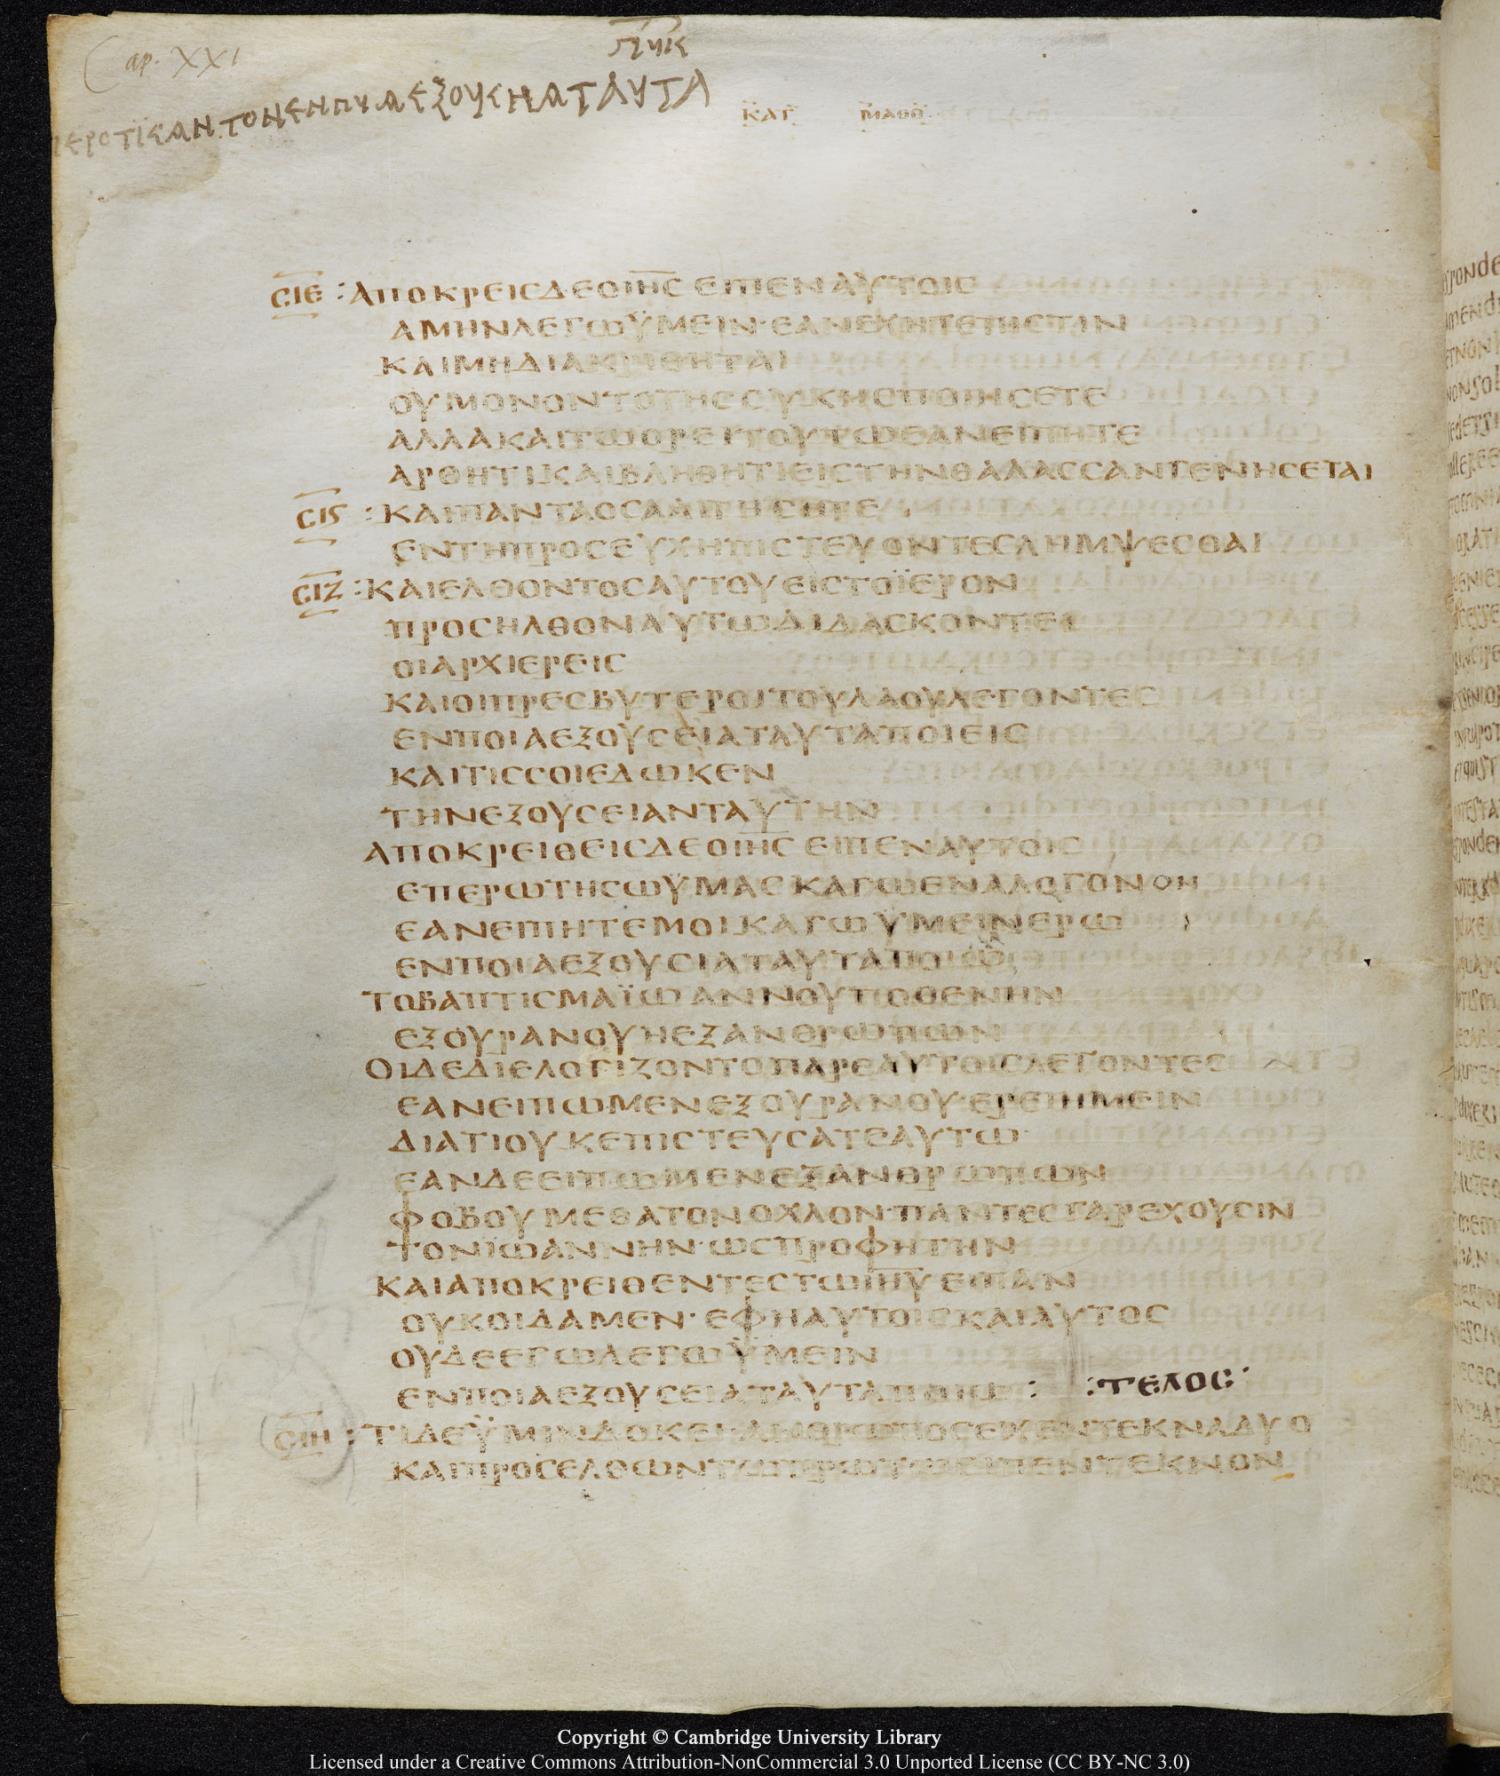 Cap. XXI
ΚΑΤ ΜΑΘΘ
ϹΙΕ :ΑΠΟΚΡΕΙϹΔΕΟΙΗϹ ΕΙΠΕΝΑΥΤΟΙϹ
ΑΜΗΝΛΕΓΩΫΜΕΙΝ·ΕΑΝΕΧΗΤΕΠΙϹΤΙΝ
ΚΑΙΜΗΔΙΑΚΡΙΘΗΤΑΙ
ΟΥΜΟΝΟΝΤΟΤΗϹϹΥΚΗϹΠΟΙΗϹΕΤΕ
ΑΛΛΑΚΑΙΤΩΟΡΕΙΤΟΥΤΩΕΑΝΕΙΠΗΤΕ
ΑΡΘΗΤΙΚΑΙΒΛΗΘΗΤΙΕΙϹΤΗΝΘΑΛΑϹϹΑΝΓΕΝΗϹΕΤΑΙ
ϹΙϚ :ΚΑΙΠΑΝΤΑΟϹΑΑΙΤΗϹΗΤΕ
ΕΝΤΗΠΡΟϹΕΥΧΗΠΙϹΤΕΥΟΝΤΕϹΛΗΜΨΕϹΘΑΙ
ϹΙΖ :ΚΑΙΕΛΘΟΝΤΟϹΑΥΤΟΥΕΙϹΤΟΪΕΡΟΝ
ΠΡΟϹΗΛΘΟΝΑΥΤΩΔΙΔΑϹΚΟΝΤΕΙ
ΟΙΑΡΧΙΕΡΕΙϹ
ΚΑΙΟΙΠΡΕϹΒΥΤΕΡΟΙΤΟΥΛΑΟΥΛΕΓΟΝΤΕϹ
ΕΝΠΟΙΑΕΞΟΥϹΕΙΑΤΑΥΤΑΠΟΙΕΙϹ
ΚΑΙΤΙϹϹΟΙΕΔΩΚΕΝ
ΤΗΝΕΞΟΥϹΕΙΑΝΤΑΥΤΗΝ
ΑΠΟΚΡΕΙΘΕΙϹΔΕΟΙΗϹ ΕΙΠΕΝΑΥΤΟΙϹ
ΕΠΕΡΩΤΗϹΩΥΜΑϹΚΑΓΩΕΝΑΛΟΓΟΝΟΝ
ΕΑΝΕΙΠΗΤΕΜΟΙ·ΚΑΓΩΫΜΕΙΝΕΡΩ
ΕΝΠΟΙΑΕΞΟΥϹΙΑΤΑΥΤΑΠΟΙΩ
ΤΟΒΑΠΤΙϹΜΑΪΩΑΝΝΟΥΠΟΘΕΝΗΝ
ΕΞΟΥΡΑΝΟΥΗΕΞΑΝΘΡΩΠΩΝ
ΟΙΔΕΔΙΕΛΟΓΙΖΟΝΤΟΠΑΡΕΑΥΤΟΙϹΛΕΓΟΝΤΕϹ
ΕΑΝΕΙΠΩΜΕΝΕΞΟΥΡΑΝΟΥ·ΕΡΕΙΗΜΕΙΝ
ΔΙΑΤΙΟΥΚΕΠΙϹΤΕΥϹΑΤΕΑΥΤΩ
ΕΑΝΔΕΕΙΠΩΜΕΝΕΞΑΝΘΡΩΠΩΝ
ΦΟΒΟΥΜΕΘΑΤΟΝΟΧΛΟΝ·ΠΑΝΤΕϹΓΑΡΕΧΟΥϹΙΝ
ΤΟΝΙΩΑΝΝΗΝ·ΩϹΠΡΟΦΗΤΗΝ
ΚΑΙΑΠΟΚΡΕΙΘΕΝΤΕϹΤΩΙΗΥ ΕΙΠΑΝ
ΟΥΚΟΙΔΑΜΕΝ·ΕΦΗΑΥΤΟΙϹΚΑΙΑΥΤΟϹ
ΟΥΔΕΕΓΩΛΕΓΩΫΜΕΙΝ
ΕΝΠΟΙΑΕΞΟΥϹΕΙΑΤΑΥΤΑΠΟΙΩ : :ΤΕΛΟϹ:
ϹΙΗ :ΤΙΔΕΫΜΙΝΔΟΚΕΙ·ΑΝΘΡΩΠΟϹΕΙΧΕΝΤΕΚΝΑΔΥΟ
ΚΑΙΠΡΟϹΕΛΘΩΝΤΩΠΡΩΤΩΕΙΠΕΝΤΕΚΝΟΝ
Copyright © Cambridge University Library
Licensed under a Creative Commons Attribution-NonCommercial 3.0 Unported License (CC BY-NC 3.0)